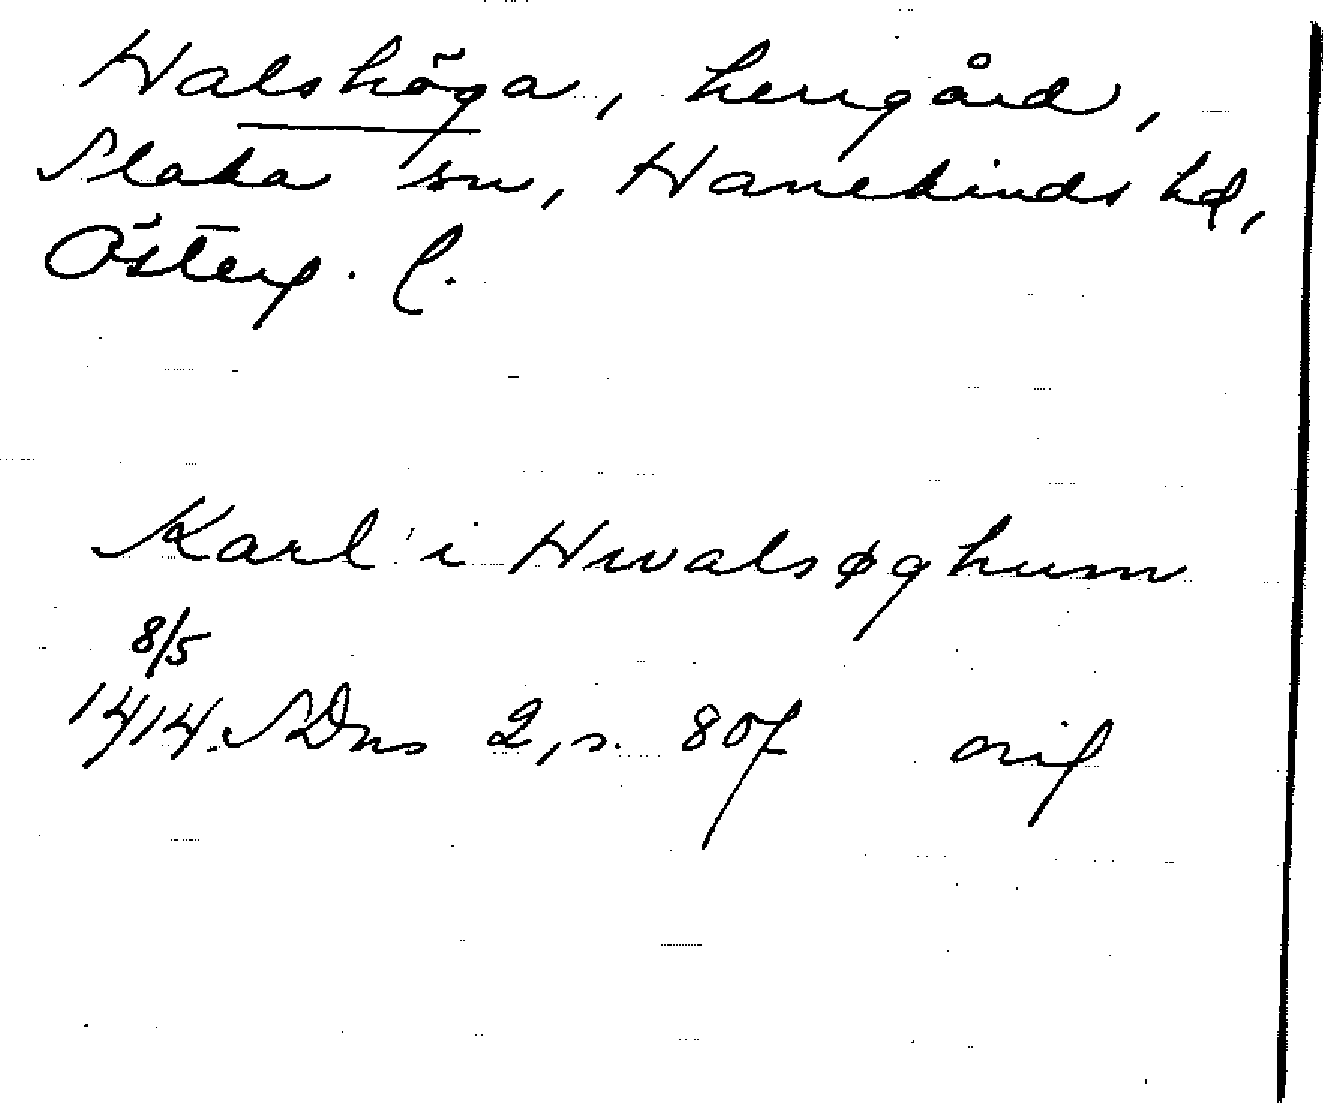 Halshöga, herrgård,
Slaka sn, Hanekinds hd,
Österg. l.
Karl i Hwalsøghum
8/5
1414 SDns 2, s. 807 orig